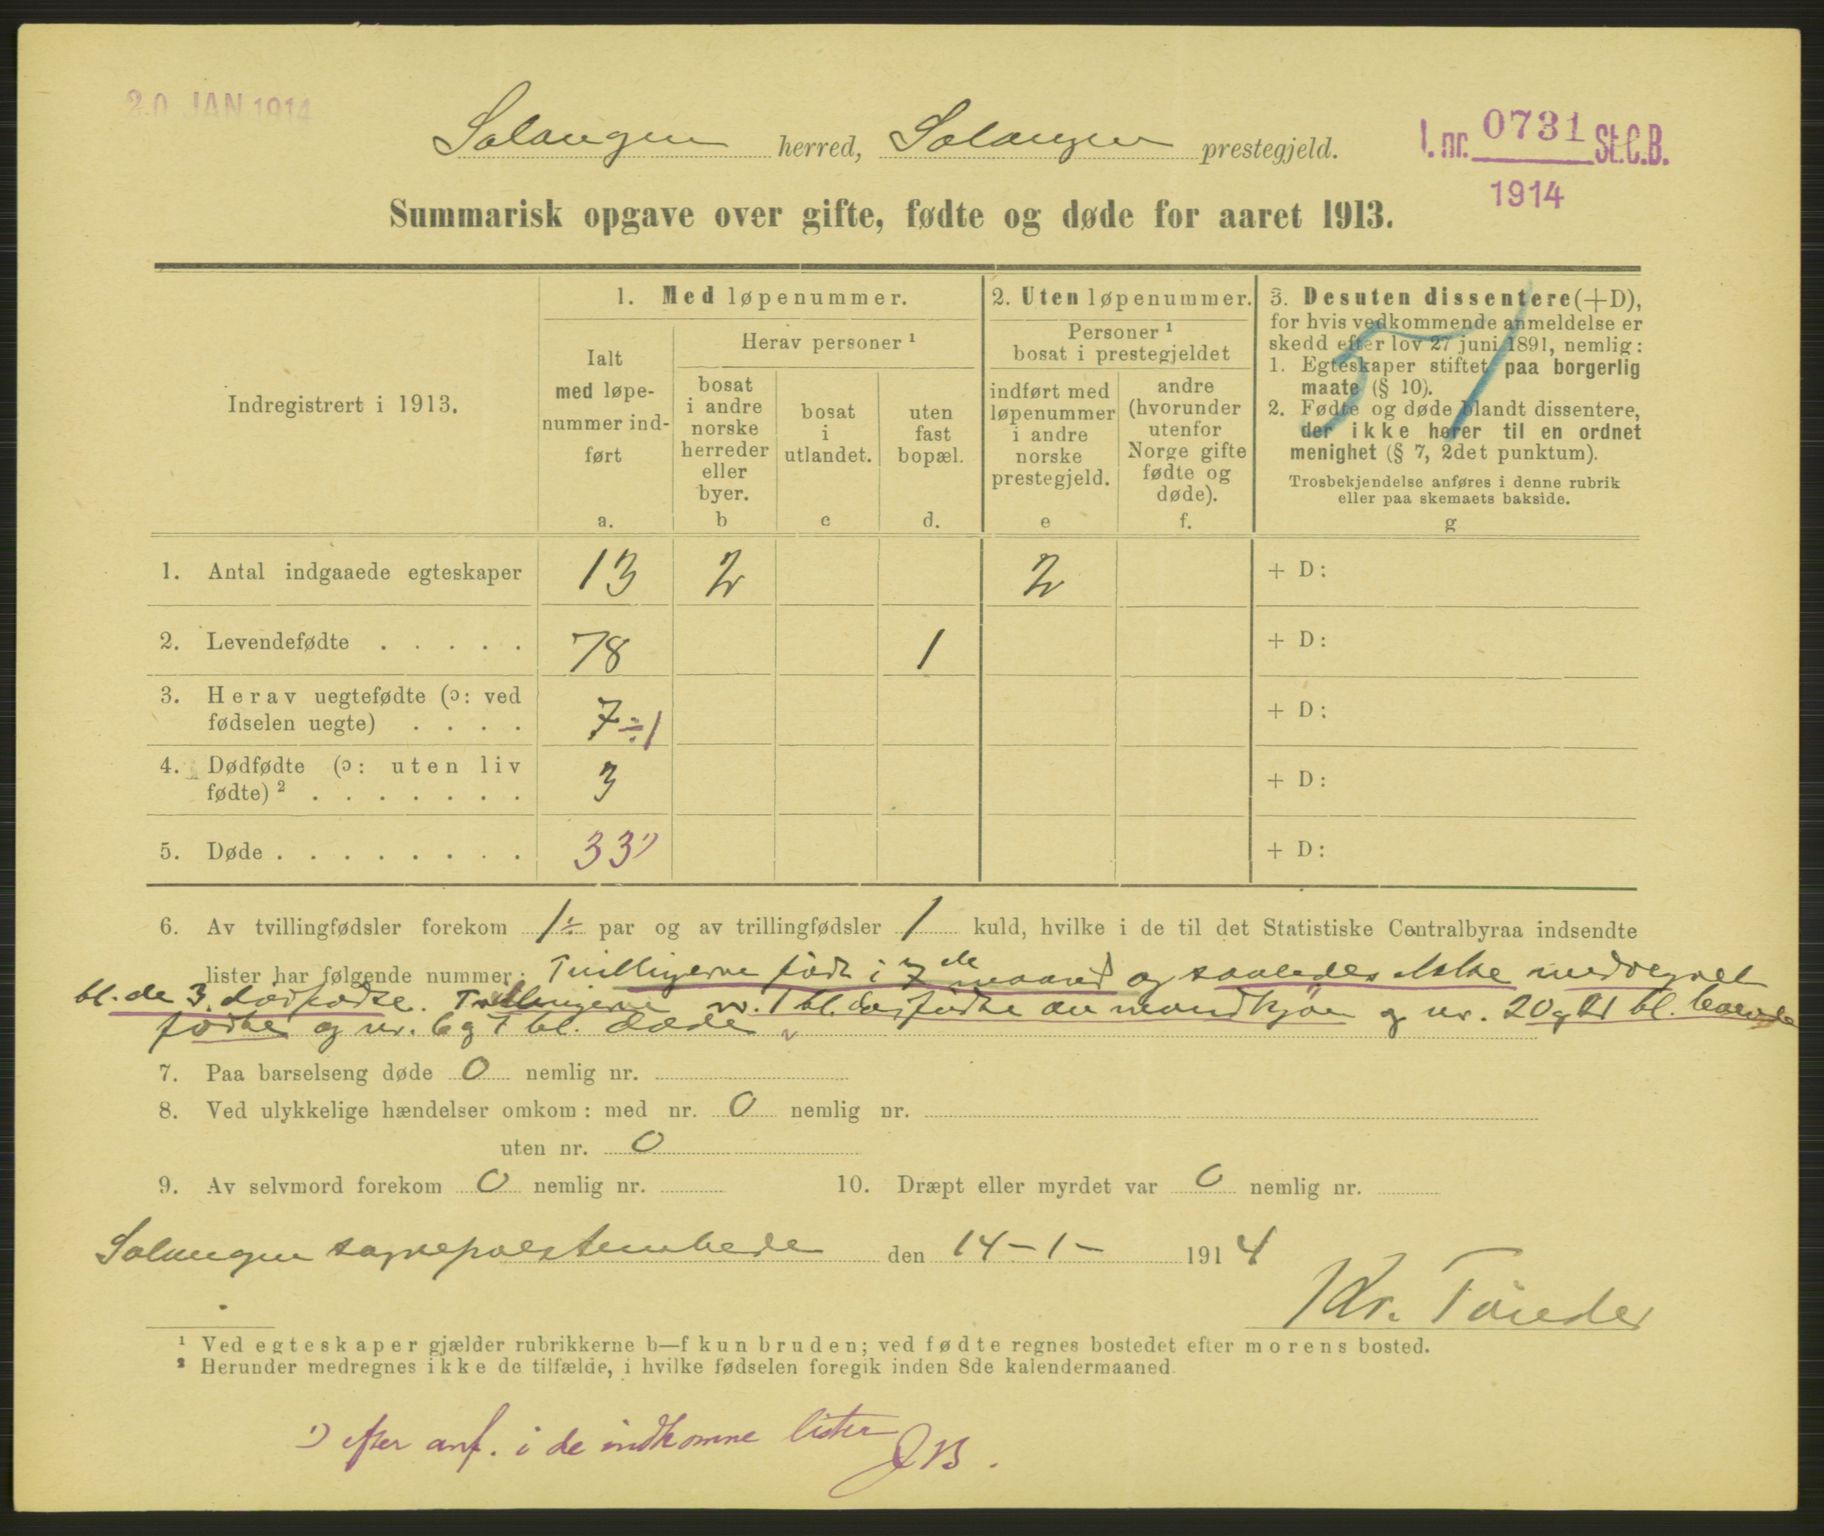 20 JAN 1914
Salangen herred, Salangen prestegjeld.
I. nr. 0731 St.C.B.
1914
Summarisk opgave over gifte, fødte og døde for aaret 1913.
Indregistrert i 1913.
1. Med løpenummer.
Ialt
med løpe-
nummer ind-
ført
a.
Herav personer ¹
bosat
i andre
norske
herreder
eller
byer.
b
bosat
i
utlandet.
c
uten
fast
bopæl.
d.
2. Uten løpenummer.
Personer ¹
bosat i prestegjeldet
indført med
løpenummer
i andre
norske
prestegjeld.
e
andre
(hvorunder
utenfor
Norge gifte
fødte og
døde).
f.
3. Desuten dissentere (+D),
for hvis vedkommende anmeldelse er
skedd efter lov 27 juni 1891, nemlig:
1. Egteskaper stiftet paa borgerlig
maate (§ 10).
2. Fødte og døde blandt dissentere,
der ikke hører til en ordnet
menighet (§ 7, 2det punktum).
Trosbekjendelse anføres i denne rubrik
eller paa skemaets bakside.
g
51
1. Antal indgaaede egteskaper 13 2 2 + D:
2. Levendefødte . . . . . 78 1 + D:
3. Herav uegtefødte (ɔ: ved
fødselen uegte) . . . . 7 ÷1 + D:
4. Dødfødte (ɔ: uten liv
fødte) ² . . . . . . . 3 + D:
5. Døde . . . . . . . . 33 ¹) + D:
6. Av tvillingfødsler forekom 1 ÷ par og av trillingfødsler 1 kuld, hvilke i de til det Statistiske Centralbyraa indsendte
lister har følgende nummer: Tvillingerne født i 7 de maaned og saaledes ikke medregnet
bl. de 3 dødfødte. Trillingerne nr. 1 bl. dødfødte av mandkjøn og nr. 20 og 21 bl. levende
fødte og nr. 6 og 7 bl. døde
7. Paa barselseng døde 0 nemlig nr.
8. Ved ulykkelige hændelser omkom: med nr. 0 nemlig nr.
uten nr. 0
9. Av selvmord forekom 0 nemlig nr. 10. Dræpt eller myrdet var 0 nemlig nr.
Salangen sogneprestembede den 14-1- 1914
Kr. Tønder
¹ Ved egteskaper gjælder rubrikkerne b—f kun bruden; ved fødte regnes bostedet efter morens bosted.
² Herunder medregnes ikke de tilfælde, i hvilke fødselen foregik inden 8de kalendermaaned.
¹) efter anf. i de indkomne lister
JB.